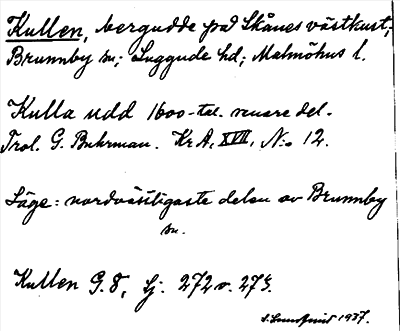 Kullen, bergudde på Skånes västkust;
Brunnby sn; Luggude hd; Malmöhus l.
Kulla udd 1600-tal. senare del.
Trol. G. Buhrman. Kr A, XVII, N:o 12.
Läge: nordvästligaste delen av Brunnby
sn.
Kullen G. 8, Sj. 272 o. 273.
S. Lundqvist 1937.